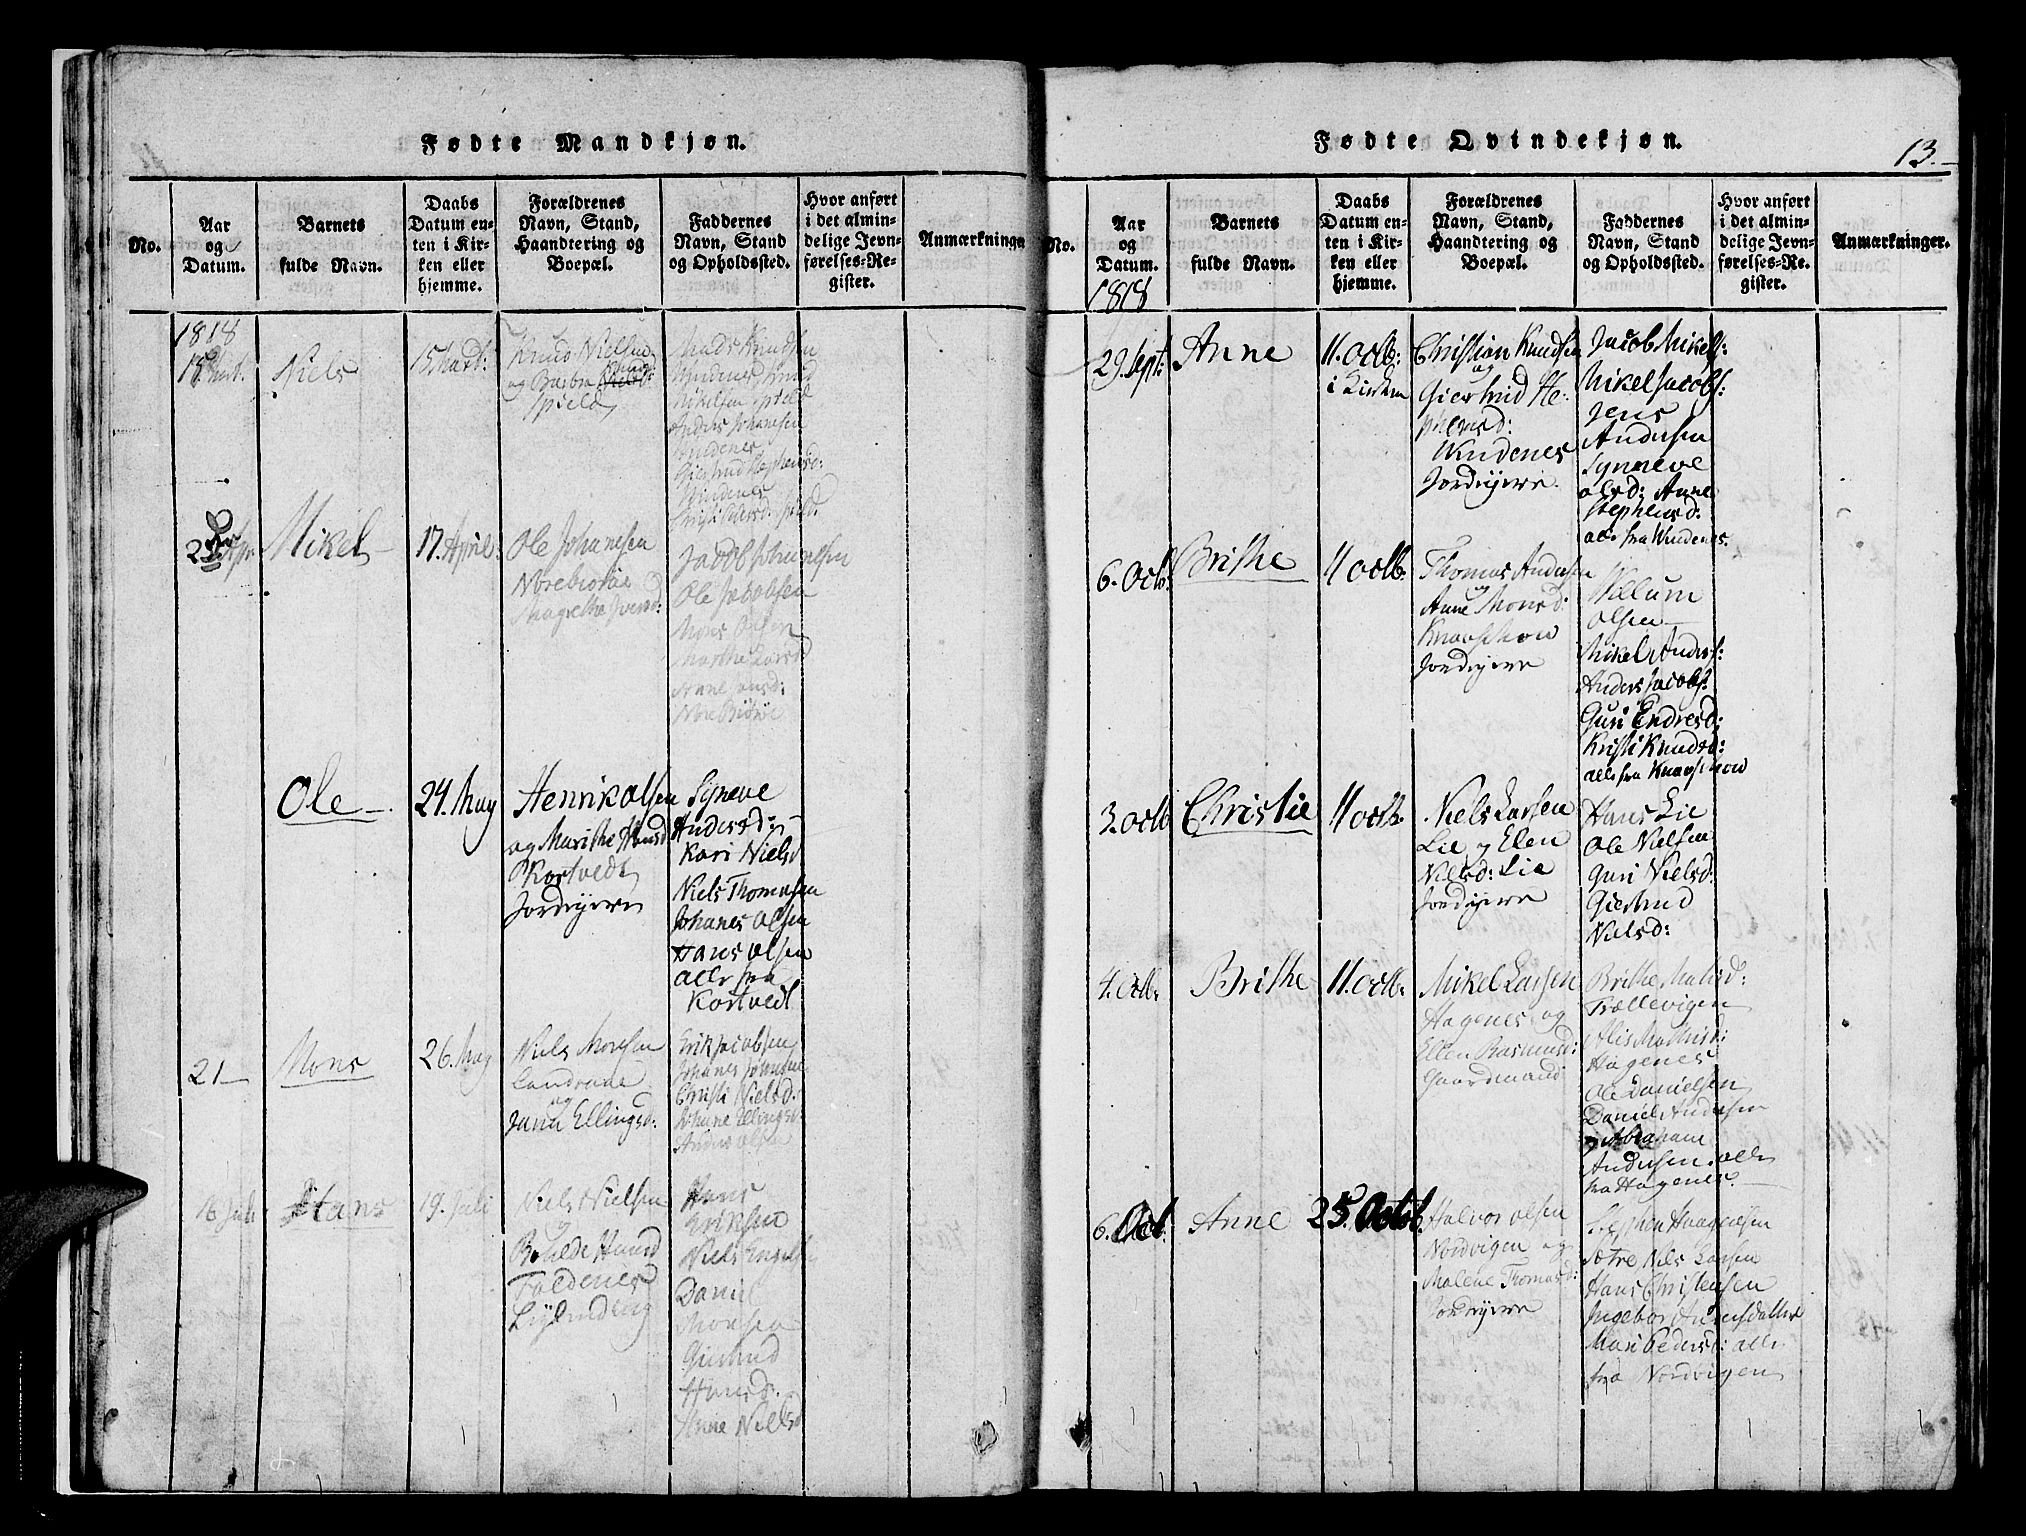 Fødte Mandkjøn.
No.
Aar
og
Datum.
Barnets
fulde Navn.
Daabs
Datum en-
ten i Kir-
ken eller
hjemme.
Forældrenes
Navn, Stand,
Haandtering og
Boepæl.
Faddernes
Navn, Stand
og Opholdssted.
Hvor anført
i det almin-
delige Jevn-
førelses-Re-
gister.
Anmærkninge
1818
15 Mart:
Niels
15 Mart:
Knud Nielsen
og Barbra
Mads Knudsen
Vindenes Knud
Mikelsen
Anders Johannesen
Vindenes
Giertrud Stephensd:
Vindenes
Apr
Mikel
17. April:
Ole Johanesen
Norebiøröe
Magrethe Iversd:
Jacob Johannesen
Ole Jacobsen
Mons Olsen
Marthe Larsd
Anne Jansd:
Nore Biöröe
Ole
24. May
Henrik Olsen
og Marithe Hansd
Kortvedt
Jordeyere
Syneve
Andersd:
Kari Nielsd
Niels Thomasen
Johanes Olsen
Hans Olsen
alle fra
Kortvedt
21
Mons
26. May
Niels Monsen
Landraae
og
Janni Ellingsd:
Erik Jacobsen
Johanes Johnsen
Christi Nielsd:
Johane Ellingsd:
Anders Olsen
16 Juli
Hans
19. Juli
Niels Nielsen
og
Hansd
Foldenes
Hans
Eriksen
Niels
Daniel
Monsen
Giertrud
Hansd.
Anne Nielsd
Fødte Qvindekjøn.
13.
No.
Aar
og
Datum.
Barnets
fulde Navn.
Daabs
Datum en-
ten i Kir-
ken eller
hjemme.
Forældrenes
Navn, Stand,
Haandtering og
Boepæl.
Faddernes
Navn, Stand
og Opholdssted.
Hvor anført
i det almin-
delige Jevn-
førelses-Re-
gister.
Anmærkninger.
1818
29. Sept:
Anne
11. Octb:
i Kirken
Christian Knudsen
og
Giertrud
Vindenes
Jordeyere
Jacob Mikels:
Mikel Jacobs:
Jens
Andersen
Synneve
Olsd: Anne
Stephensd:
alle fra Vindenes.
6. Octb:
Brithe
11 Octb.
Thomas Andersen
og
Anne Monsd:
Knapskow
Jordeyere
Villum
Olsen
Mikel Anders:
Anders Jacobs:
Guri Endresd:
Kristi Knudsd:
alle fra Knapskow
3. Octb
Christie
11 Octb.
Niels Larsen
Lie og Elen
Nielsd: Lie
Jordeyere
Hans Lie
Ole Nielsen
Guri Nielsd:
Giertrud
Nielsd:
4. Octb:
Brithe
11. Octb:
Mikel Larsen
Hagenes og
Ellen Rasmusd:
Gaardmand
Brithe Matisd:
Trællevigen
Alis Mathisd:
Hagenes
Ole Danielsen
Daniel Andersen
og Abraham
Andersen alle
fra Hagenes.
6. Octb:
Anne
25. Octob.
Halvor Olsen
Nordvigen og
Malene Thomasd:
Jordeyere
Stephen Haagensen
Sætre Niels Larsen
Hans Christensen
Ingebor
Mari Pedersd: alle
fra Nordvigen